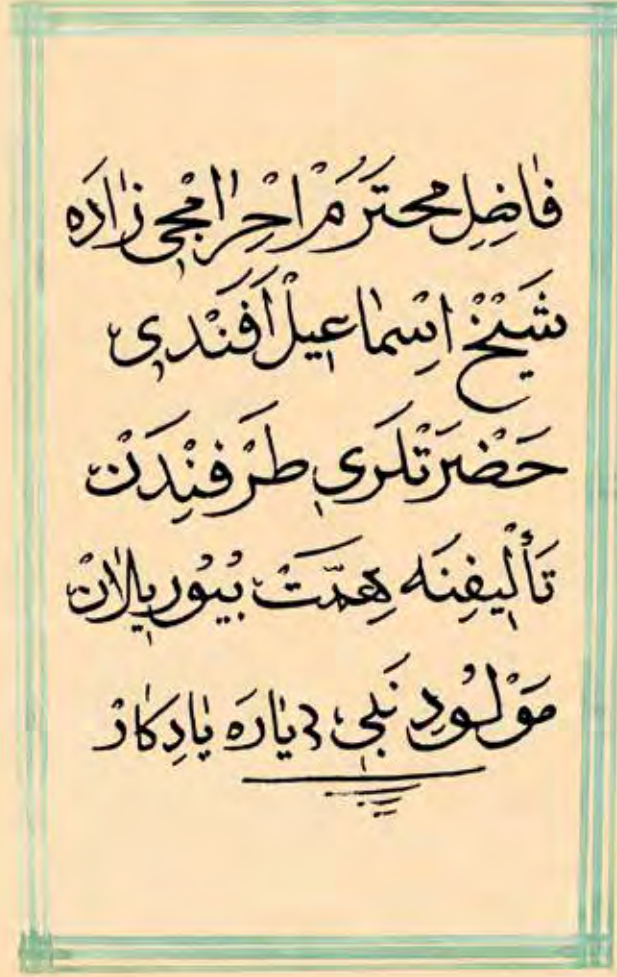 فَاضِلِ محتَرَمْ اِحْرَامْجِى زَادَه
شَيْخْ اِسْمَاعِيلْ اَفَنْدِى
حَضْرَتْلَرِى طَرَفِنْدَنْ
تَأْلِيفِنَه هِمَّتْ بُيُورِيلَانْ
مَوْلُودِ نَبِى دِيَارَه يَادِكَارْ